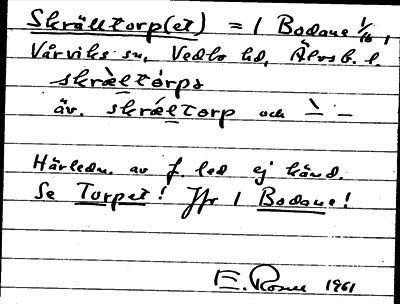 Skrälltorp(et) = 1 Bodane 1/16,
Vårviks sn, Vedbo hd, Älvsb. l.
skràltórpə
äv. skráltorp och ` –
Härledn. av f. led ej känd.
Se Torpet! Jfr 1 Bodane!
E. Rosne 1961